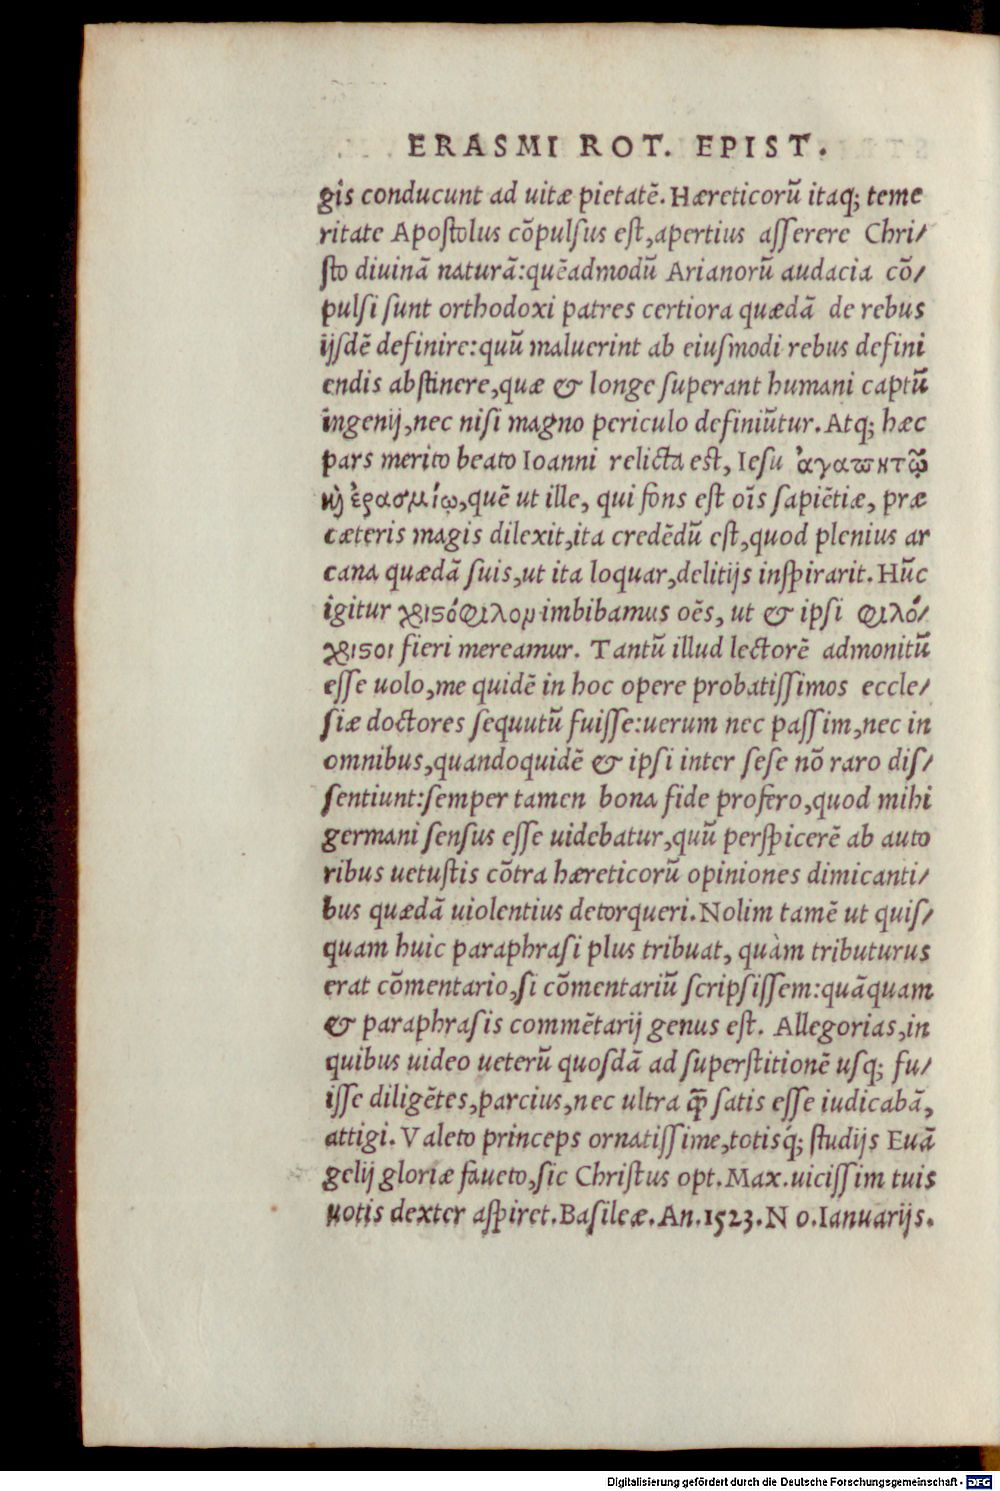 ERASMI ROT. EPIST.
gis conducunt ad uitæ pietatē. Hæreticorū itaq; teme
ritate Apostolus cōpulsus est, apertius asserere Chri/
sto diuinā naturā: quēadmodū Arianorū audacia cō/
pulsi sunt orthodoxi patres certiora quædā de rebus
ijsdē definire: quū maluerint ab eiusmodi rebus defini
endis abstinere, quæ & longe superant humani captū
ingenij, nec nisi magno periculo definiūtur. Atq; hæc
pars merito beato Ioanni relicta est, Iesu ἀγαπητῷ
καὶ ἐρασμίῳ, quē ut ille, qui fons est oīs sapiētiæ, præ
cæteris magis dilexit, ita credēdū est, quod plenius ar
cana quædā suis, ut ita loquar, delitijs inspirarit. Hūc
igitur χριστόφιλον imbibamus oēs, ut & ipsi φιλό/
χριστοι fieri mereamur. Tantū illud lectorē admonitū
esse uolo, me quidē in hoc opere probatissimos eccle/
siæ doctores sequutū fuisse: uerum nec passim, nec in
omnibus, quandoquidē & ipsi inter sese nō raro dis/
sentiunt: semper tamen bona fide profero, quod mihi
germani sensus esse uidebatur, quū perspicerē ab auto
ribus uetustis cōtra hæreticorū opiniones dimicanti/
bus quædā uiolentius detorqueri. Nolim tamē ut quis/
quam huic paraphrasi plus tribuat, quàm tributurus
erat cōmentario, si cōmentariū scripsissem: quāquam
& paraphrasis commētarij genus est. Allegorias, in
quibus uideo ueterū quosdā ad superstitionē usq; fu/
isse diligētes, parcius, nec ultra q̄ satis esse iudicabā,
attigi. Valeto princeps ornatissime, totisq́; studijs Euā
gelij gloriæ faueto, sic Christus opt. Max. uicissim tuis
uotis dexter aspiret. Basileæ. An. 1523. N o. Ianuarijs.
Digitalisierung gefördert durch die Deutsche Forschungsgemeinschaft - DFG